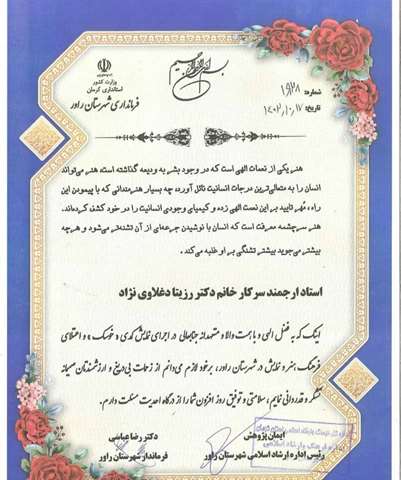 بسم الله الرحمن الرحیم
وزارت کشور
استانداری کرمان
فرمانداری شهرستان راور
شماره: ۱۹۲۸
تاریخ: ۱۴۰۲/۱۰/۱۷
هنر یکی از نعمات الهی است که در وجود بشر به ودیعه گذاشته است، هنر می‌تواند
انسان را به متعالی‌ترین درجات انسانیت نائل آورد، چه بسیار هنرمندانی که با پیمودن این
راه، مُهر تایید بر این نعمت الهی زده و کیمیای وجودی انسانیت را در خود کشف کرده‌اند.
هنر سرچشمه معرفت است که انسان با نوشیدن جرعه‌ای از آن تشنه‌تر می‌شود و هر چه
بیشتر می‌جوید بیشتر تشنگی بر او غلبه می‌کند.
استاد ارجمند سرکار خانم دکتر رزیتا دغلاوی نژاد
اینک که به فضل الهی و با همت والا و متعهدانه جنابعالی در اجرای نمایش کمدی و خوسک ه و اعتلای
فرهنگ، هنر و نمایش در شهرستان راور، بر خود لازم می‌دانم از زحمات بی‌دریغ و ارزشمندتان صمیمانه
تشکر و قدردانی نمایم، سلامتی و توفیق روز افزون شما را از درگاه احدیت مسئلت دارم.
ایمان پژوهش
رئیس اداره ارشاد اسلامی شهرستان راور
دکتر رضا عباسی
فرماندار شهرستان راور